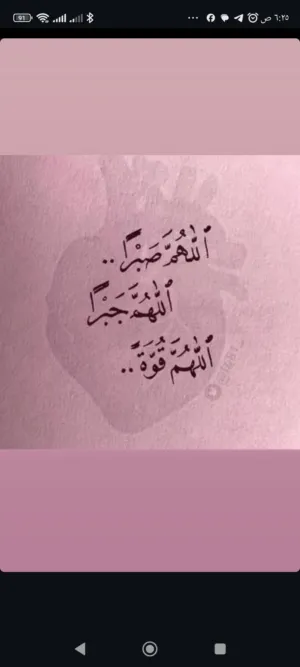 ٦:٢٥ ص
91
ٱللَّٰهُمَّ صَبْرًا ..
ٱللَّٰهُمَّ جَبْرًا
ٱللَّٰهُمَّ قُوَّةً ..